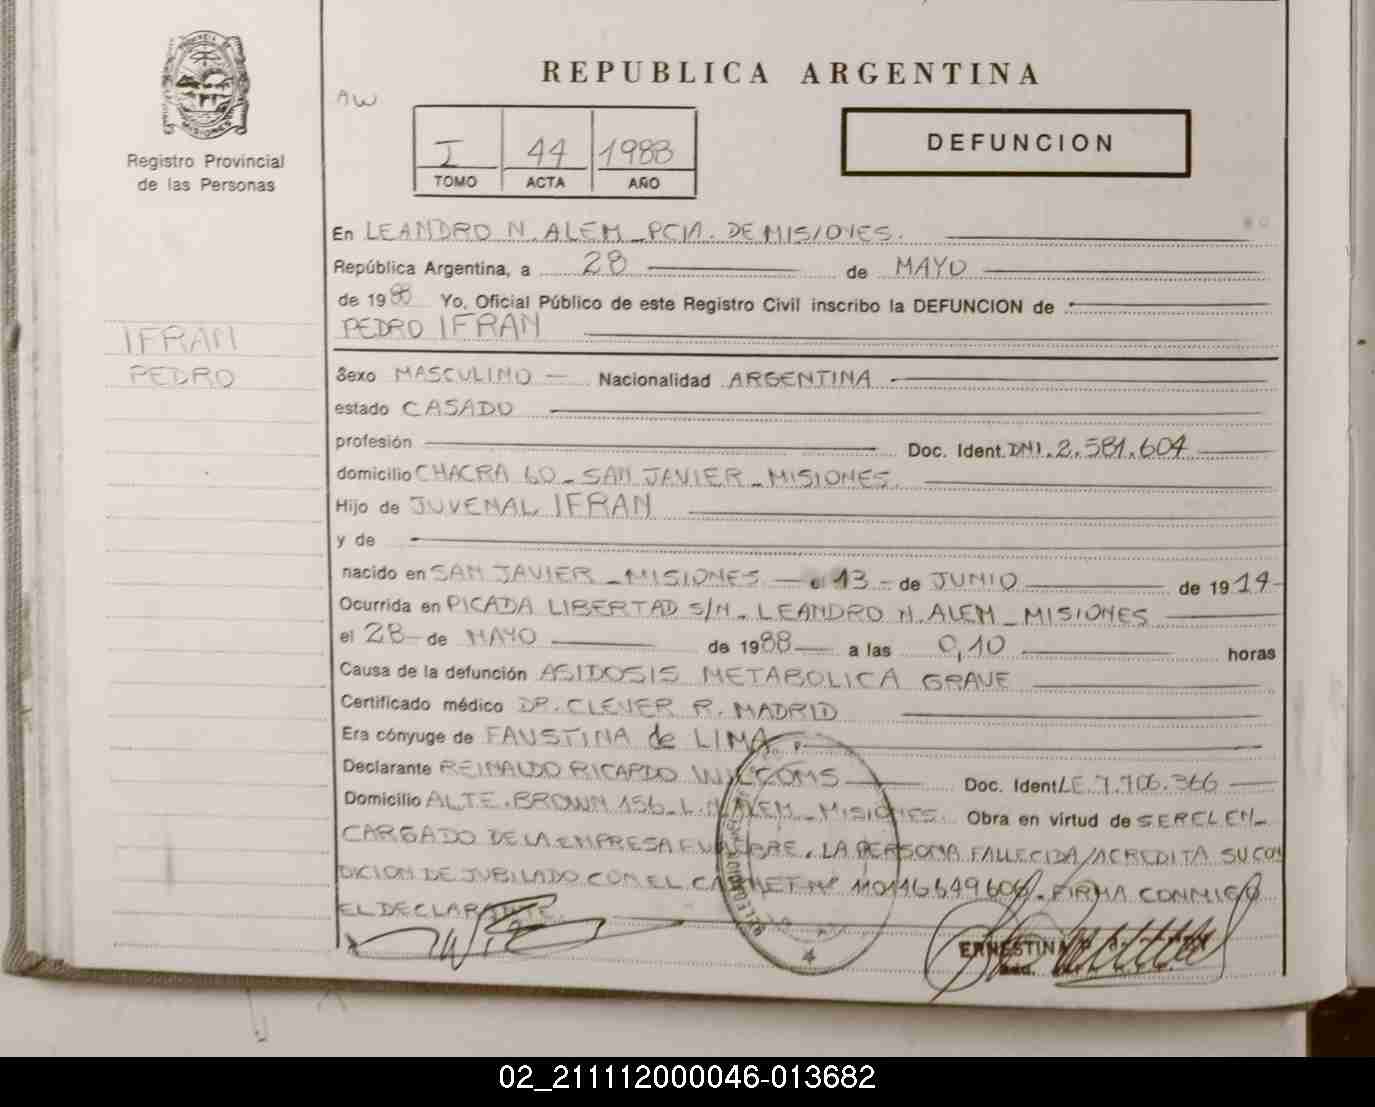 PROVINCIA DE
MISIONES
Registro Provincial
de las Personas
IFRAN
PEDRO
REPUBLICA ARGENTINA
AW
I 44 1988
TOMO ACTA AÑO
DEFUNCION
En LEANDRO N. ALEM - PCIA. DE MISIONES.
República Argentina, a 28 de MAYO
de 1988 Yo, Oficial Público de este Registro Civil inscribo la DEFUNCION de
PEDRO IFRAN
Sexo MASCULINO - Nacionalidad ARGENTINA
estado CASADO
profesión Doc. Ident. DNI. 2.581.604
domicilio CHACRA 60 - SAN JAVIER - MISIONES.
Hijo de JUVENAL IFRAN
y de
nacido en SAN JAVIER - MISIONES - el 13 - de JUNIO de 1914
Ocurrida en PICADA LIBERTAD S/N - LEANDRO N. ALEM - MISIONES
el 28 - de MAYO de 1988 a las 0,10 horas
Causa de la defunción ASIDOSIS METABOLICA GRAVE
Certificado médico DR. CLEVER R. MADRID
Era cónyuge de FAUSTINA de LIMA
Declarante REINALDO RICARDO Doc. Ident LE. 7.706.366
Domicilio ALTE. BROWN 156 - L. N. ALEM - MISIONES. Obra en virtud de SER EL EN-
CARGADO DE LA EMPRESA FUNEBRE. LA PERSONA FALLECIDA, ACREDITA SU CON
DICION DE JUBILADO CON EL CARNET Nº FIRMA CONMIGO
EL DECLARANTE
ERNESTINA
02_211112000046-013682